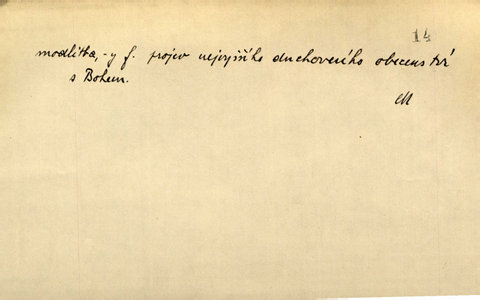 14
modlitba, -y f. projev nejvyššího duchovního obecenství
s Bohem.